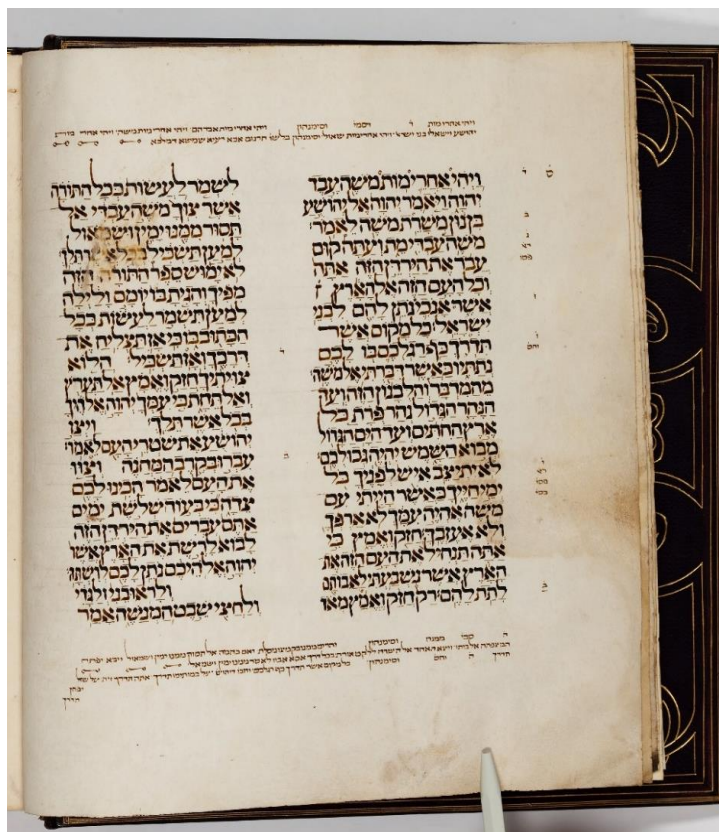 ויהי אחרי מות ד וסמי וסימנהון ויהי אחרי מות אברהם ויהי אחרי מות משה ויהי אחרי מות
יהושע וישאלו בני ישר ויהי אחרי מות שאול וסימנהון תרגום אבא רעיא
ויהי אחרי מות משה עבד
יהוה ויאמר יהוה אל יהושע
בן נון משרת משה לאמר
משה עבדי מת ועתה קום
עבר את הירדן הזה אתה
וכל העם הזה אל הארץ
אשר אנכי נתן להם לבני
ישראל כל מקום אשר
תדרך כף רגלכם בו לכם
נתתיו כאשר דברתי אל משה
מהמדבר והלבנון הזה ועד
הנהר הגדול נהר פרת כל
ארץ החתים ועד הים הגדול
מבוא השמש יהיה גבולכם
לא יתיצב איש לפניך כל
ימי חייך כאשר הייתי עם
משה אהיה עמך לא ארפך
ולא אעזבך חזק ואמץ כי
אתה תנחיל את העם הזה את
הארץ אשר נשבעתי לאבותם
לתת להם רק חזק ואמץ מאד
לשמר לעשות ככל התורה
אשר צוך משה עבדי אל
תסור ממנו ימין ושמאול
למען תשכיל בכל אשר תלך
לא ימוש ספר התורה הזה
מפיך והגית בו יומם ולילה
למען תשמר לעשות ככל
הכתוב בו כי אז תצליח את
דרכך ואז תשכיל הלוא
צויתיך חזק ואמץ אל תערץ
ואל תחת כי עמך יהוה אלהיך
בכל אשר תלך ויצו
יהושע את שטרי העם לאמר
עברו בקרב המחנה וצוו
את העם לאמר הכינו לכם
צדה כי בעוד שלשת ימים
אתם עברים את הירדן הזה
לבוא לרשת את הארץ אשר
יהוה אלהיכם נתן לכם לרשתה
ולראובני ולגדי
ולחצי שבט המנשה אמר